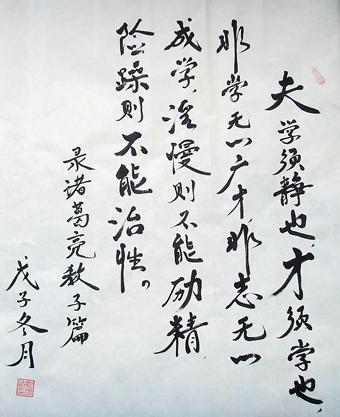 夫学须静也,才须学也,
非学无以广才非志无以
成学,淫慢则不能励精,
险躁则不能治性。
录诸葛亮教子篇
戊子冬月